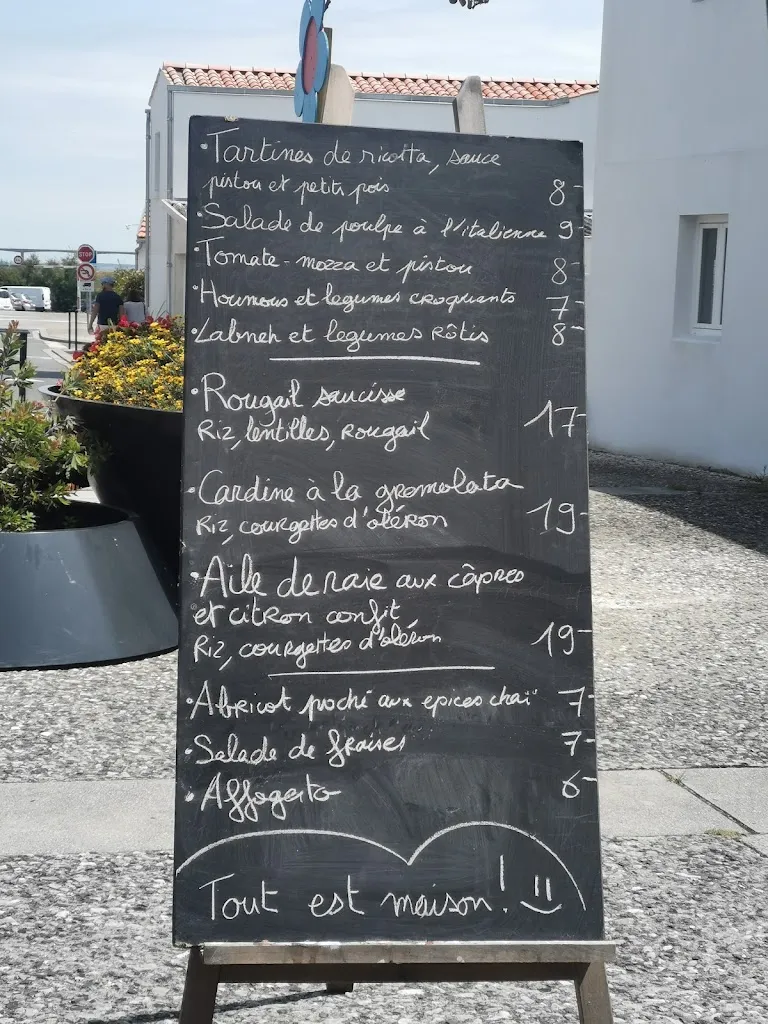 •Tartines de ricotta, sauce
pistou et petits pois 8-
•Salade de poulpe à l'italienne 9
•Tomate-mozza et pistou 8-
•Houmous et legumes croquants 7-
•Labneh et legumes Rôtis 8-
•Rougail saucisse
Riz, lentilles, Rougail 17-
•Cardine à la gremolata
Riz, courgettes d'oléron 19-
•Aile de raie aux câpres
et citron confit
Riz, courgettes d'oléron 19-
•Abricot poché aux epices chaï 7-
•Salade de fraises 7-
•Affogato 6-
Tout est maison! =)
STOP